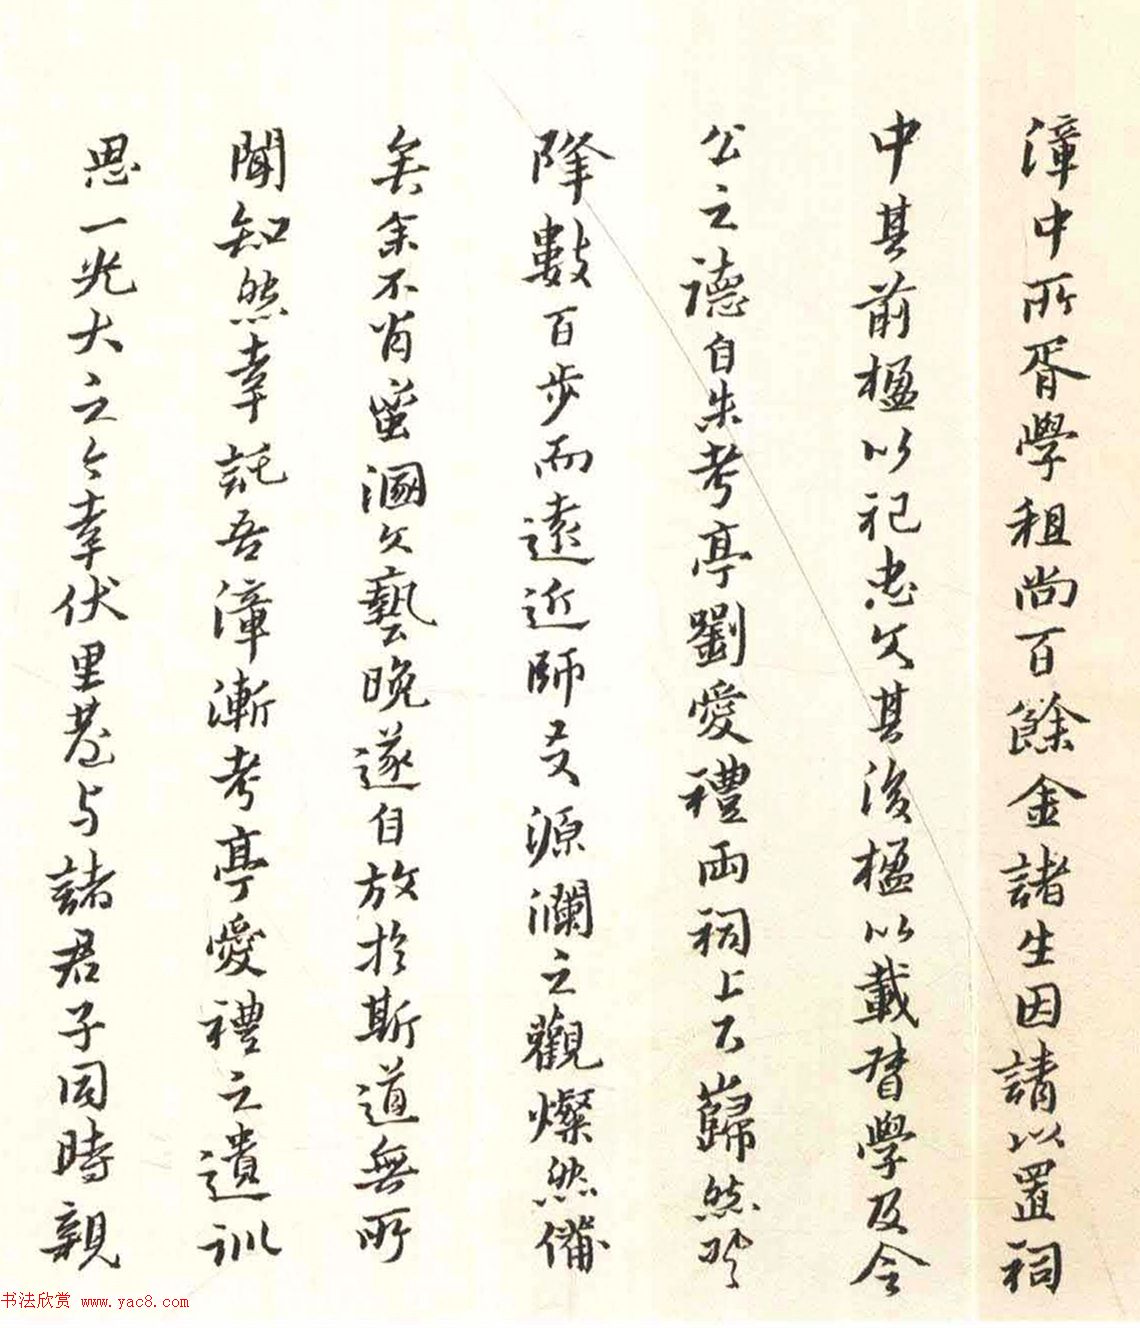 漳中所胥學租尚百餘金諸生因請以置祠
中其前楹以祀忠文其後楹以載督學及令
公之德自朱考亭劉愛禮兩祠上下巋然
降數百步而遠近師友源瀾之觀燦然備
矣余不肖蚤溷文藝晚遂自放於斯道無所
聞知然幸託吾漳漸考亭愛禮之遺訓
思一光大之今幸伏里與諸君子同時親
书法欣赏 www.yac8.com